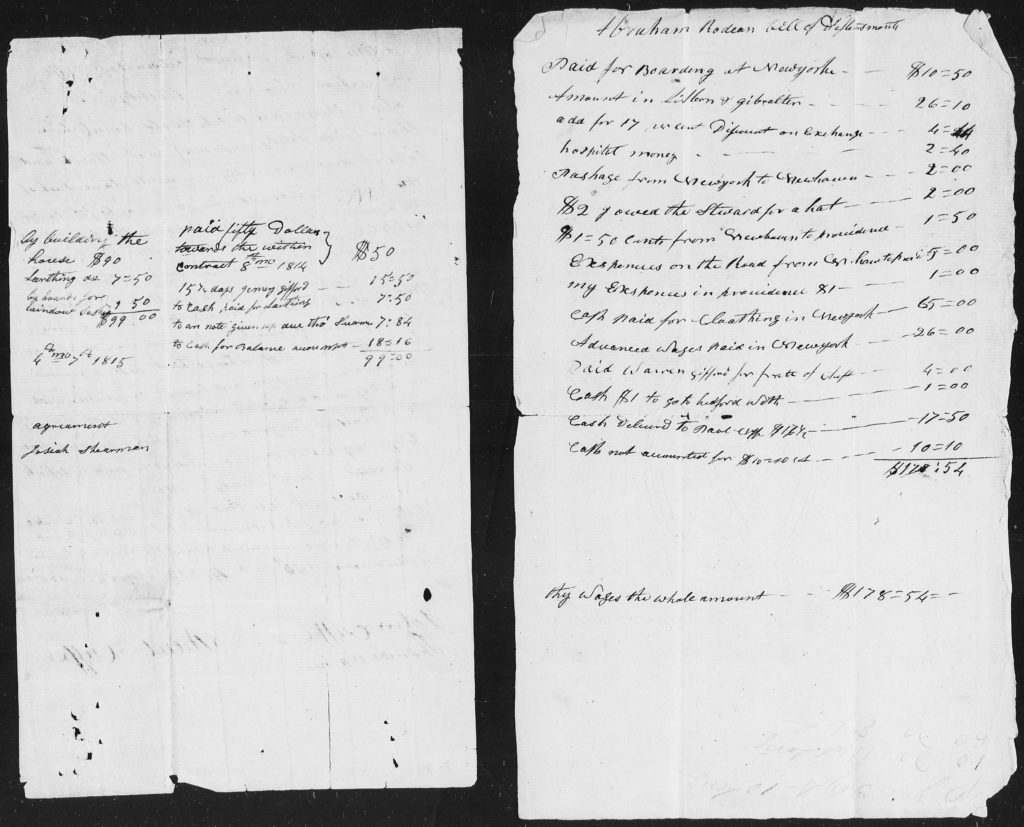 By building the
house $90
Larthing do 7=50
by boards for
window 9 50
$99 00
4th mo 7th 1815
agreament
Josiah Shearman
paid fifty Dollars
towards the within
contract 8th mo 1814 } $50
15½ days gifford 15=50
to Cash paid for Larthing 7=50
to an note given up due tho Shearman 7=84
to Cash for Balance accompt 18=16
99=00
Abraham Rodean bill of
Paid for Boarding at Newyork $10=50
Amount in Lisbon & gibralter 26=10
add for 17 cent Discount on Exchange 4=44
hospital money 2=40
Pashage from Newyork to Newhaven 2=00
$2 y owed the Steward for a hat 2=00
$1=50 Cents from Newhaven to providence 1=50
Exspences on the Road from to 5=00
my Exspences in providence $1 1=00
Cash paid for Cloathing in Newyork 65=00
Advanced Wages paid in Newyork 26=00
Paid Warren gifford for frate of 4=00
Cash $1 to go to bedford with 1=00
Cash Delivered to Paul Cuffe $17½ 17=50
Cash not accounted for $10=10 ct 10=10
$178=54
thy Wages the whole amount $178=54